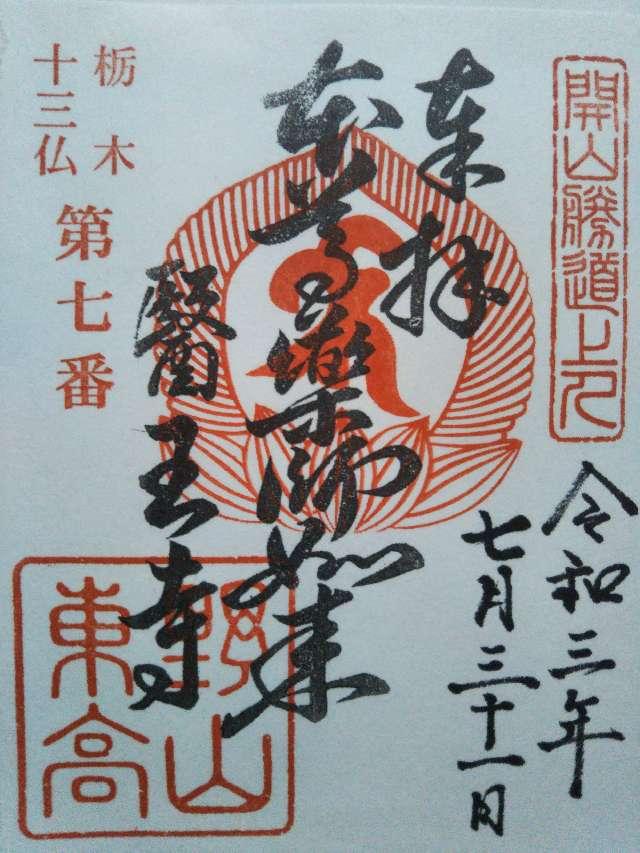 開山勝道上人
奉拝
令和三年
七月三十一日
本尊薬師如来
醫王寺
栃木
十三仏
第七番
東高野山